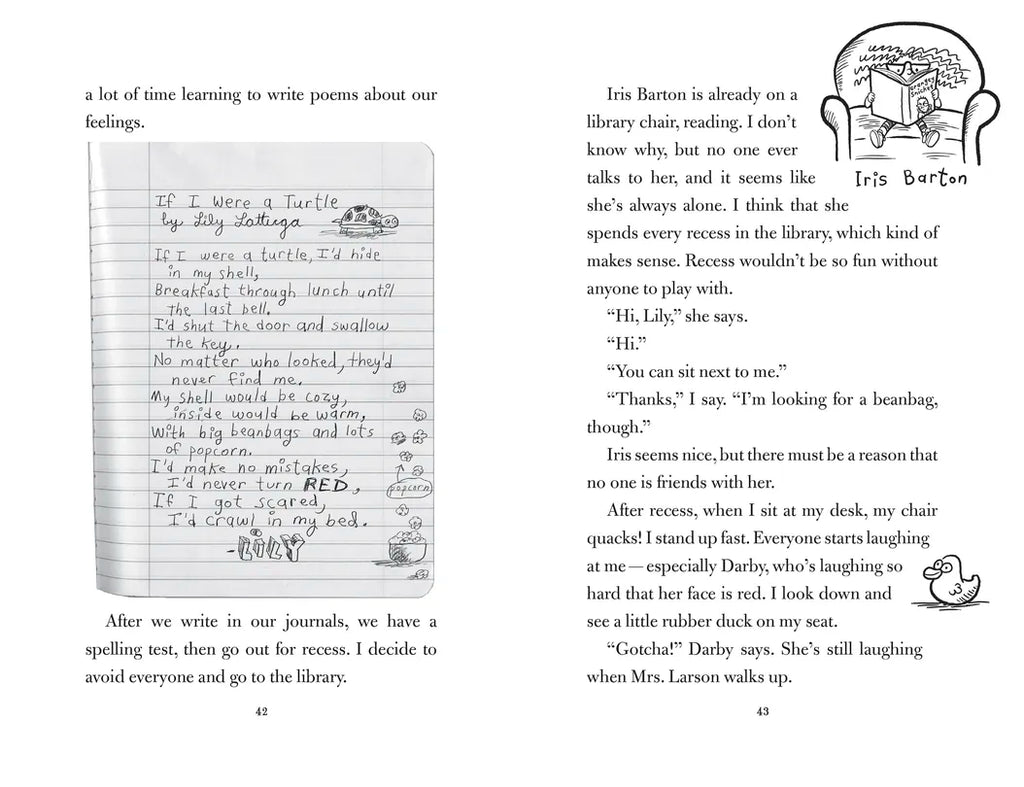 a lot of time learning to write poems about our
feelings.
If I were a Turtle
by Lily Lattuga
If I were a turtle, I'd hide
in my shell,
Breakfast through lunch until
the last bell.
I'd shut the door and swallow
the key.
No matter who looked, they'd
never find me.
My shell would be cozy,
inside would be warm,
With big beanbags and lots
of popcorn.
I'd make no mistakes,
I'd never turn RED,
If I got scared,
I'd crawl in my bed.
popcorn
-LILY
After we write in our journals, we have a
spelling test, then go out for recess. I decide to
avoid everyone and go to the library.
42
Iris Barton
Iris Barton is already on a
library chair, reading. I don't
know why, but no one ever
talks to her, and it seems like
she's always alone. I think that she
spends every recess in the library, which kind of
makes sense. Recess wouldn't be so fun without
anyone to play with.
“Hi, Lily,” she says.
“Hi.”
“You can sit next to me.”
“Thanks,” I say. “I'm looking for a beanbag,
though.”
Iris seems nice, but there must be a reason that
no one is friends with her.
After recess, when I sit at my desk, my chair
quacks! I stand up fast. Everyone starts laughing
at me—especially Darby, who's laughing so
hard that her face is red. I look down and
see a little rubber duck on my seat.
“Gotcha!” Darby says. She's still laughing
when Mrs. Larson walks up.
43